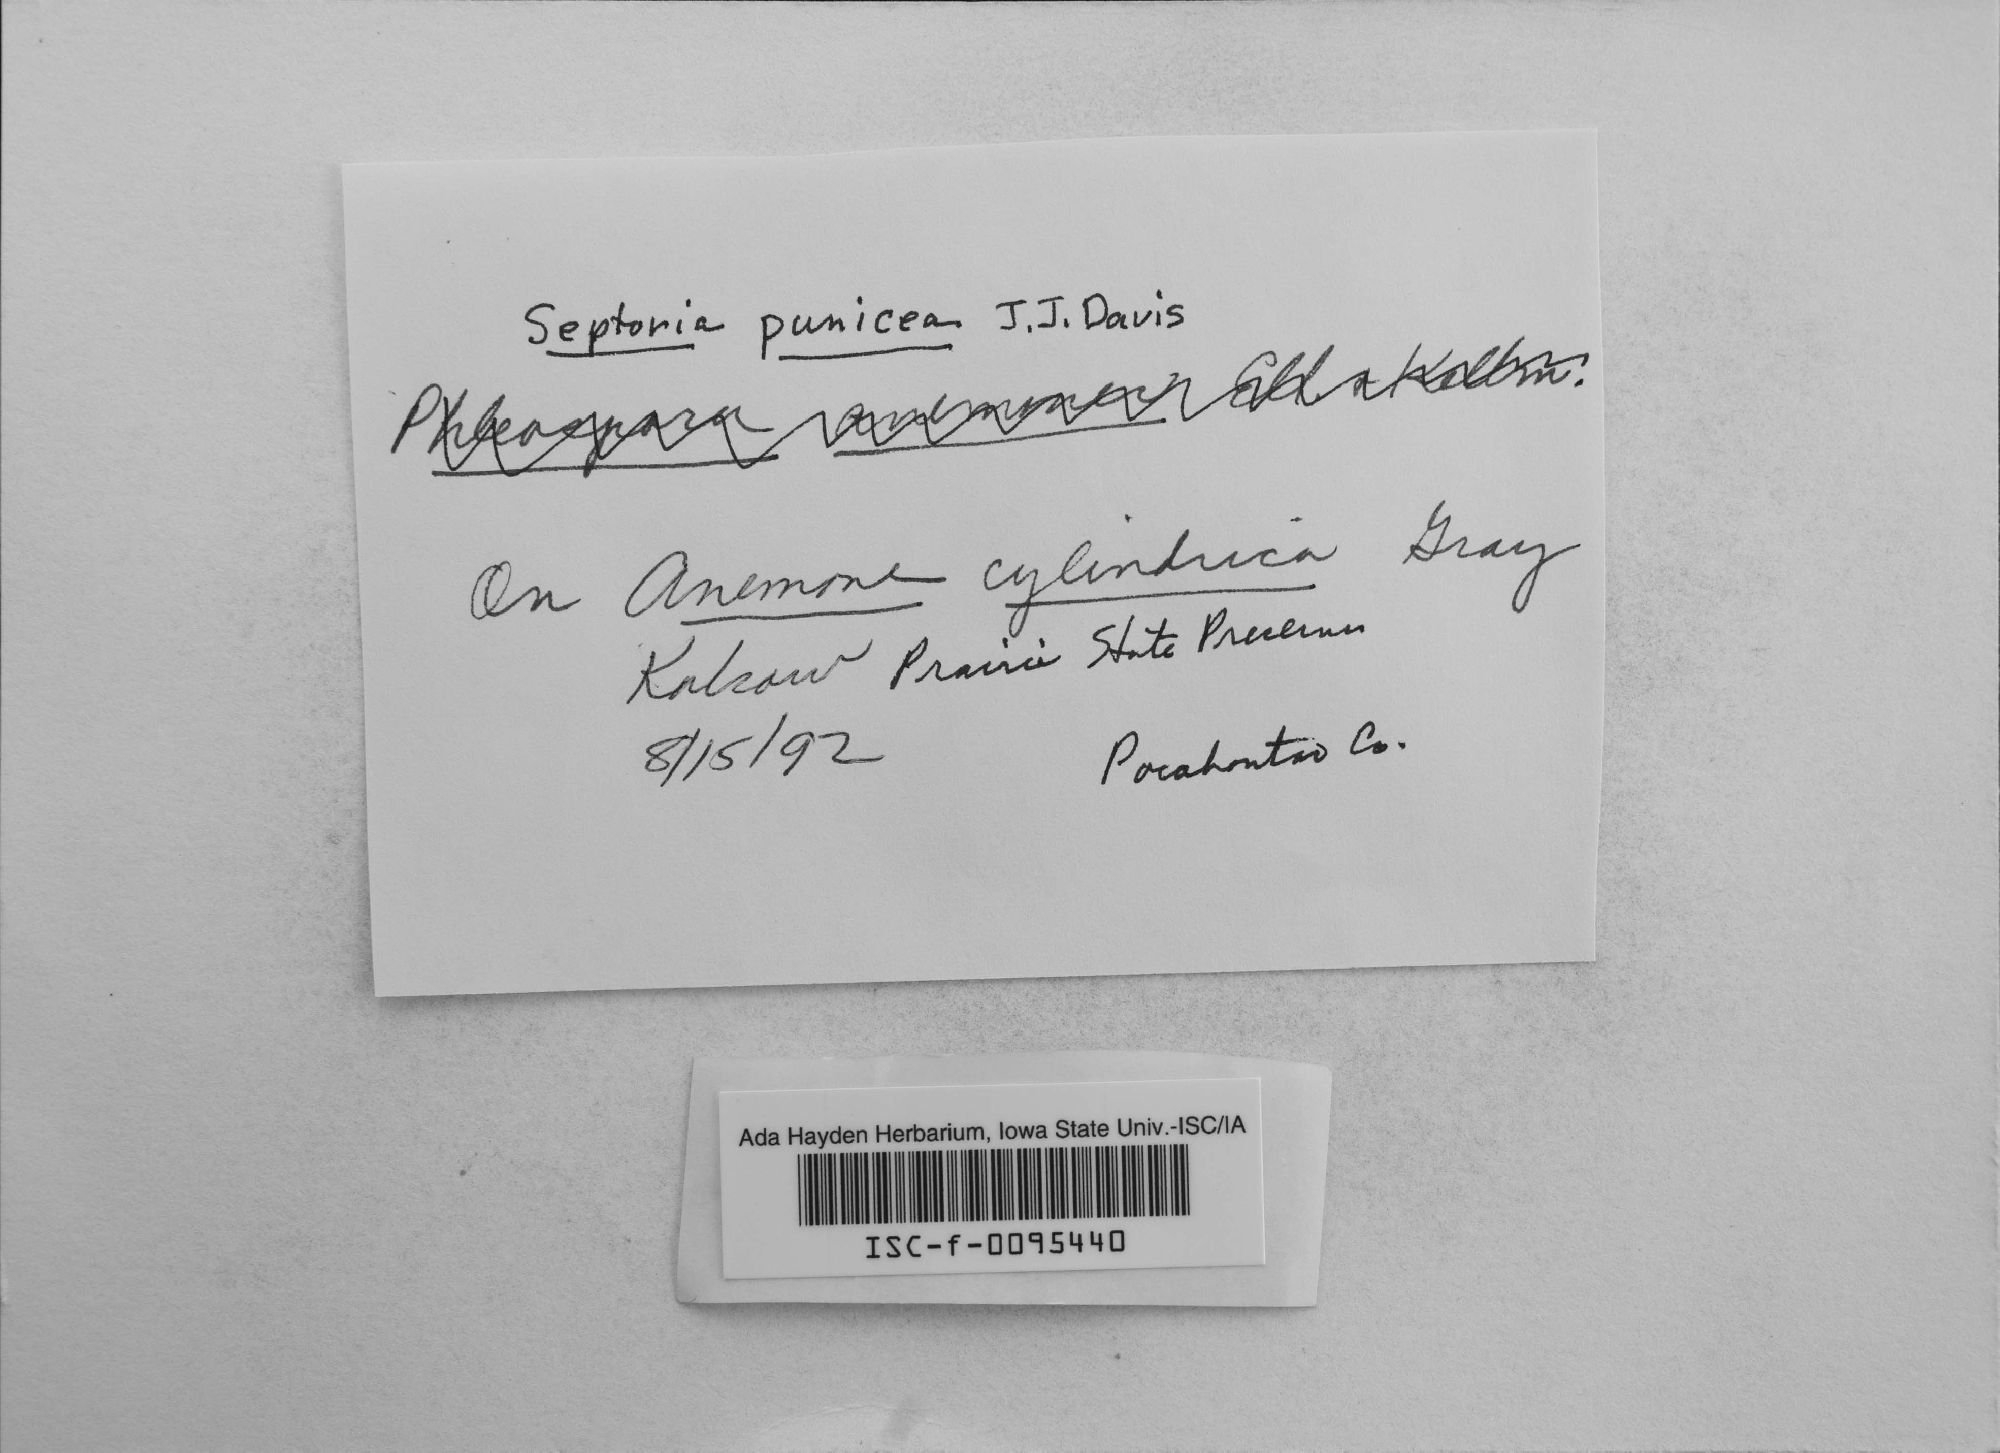 Septoria punicea J.J. Davis
Phleospora anemones Ell & Kellrm.
On Anemone cylindrica Gray
Kalsow Prairie State Preserve
8/15/92 Pocahontas Co.
Ada Hayden Herbarium, Iowa State Univ.-ISC/IA
ISC-f-0095440